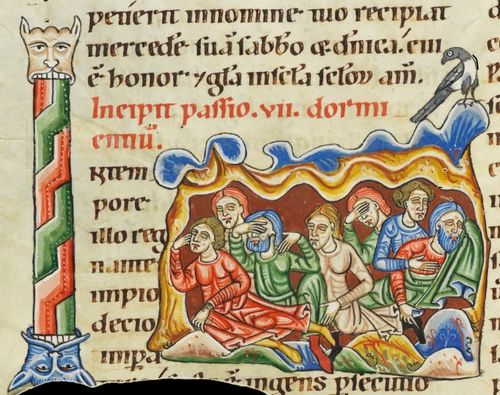 petierit innomine tuo recipiat
mercedē suā sabbo
ē honor ⁊ gła insc̄la sc̄lou am̄.
Incipit passio .vii. dormi
entiū.
INtem
pore
illo reg
nante
impio
decio
impa
ingens psecutio